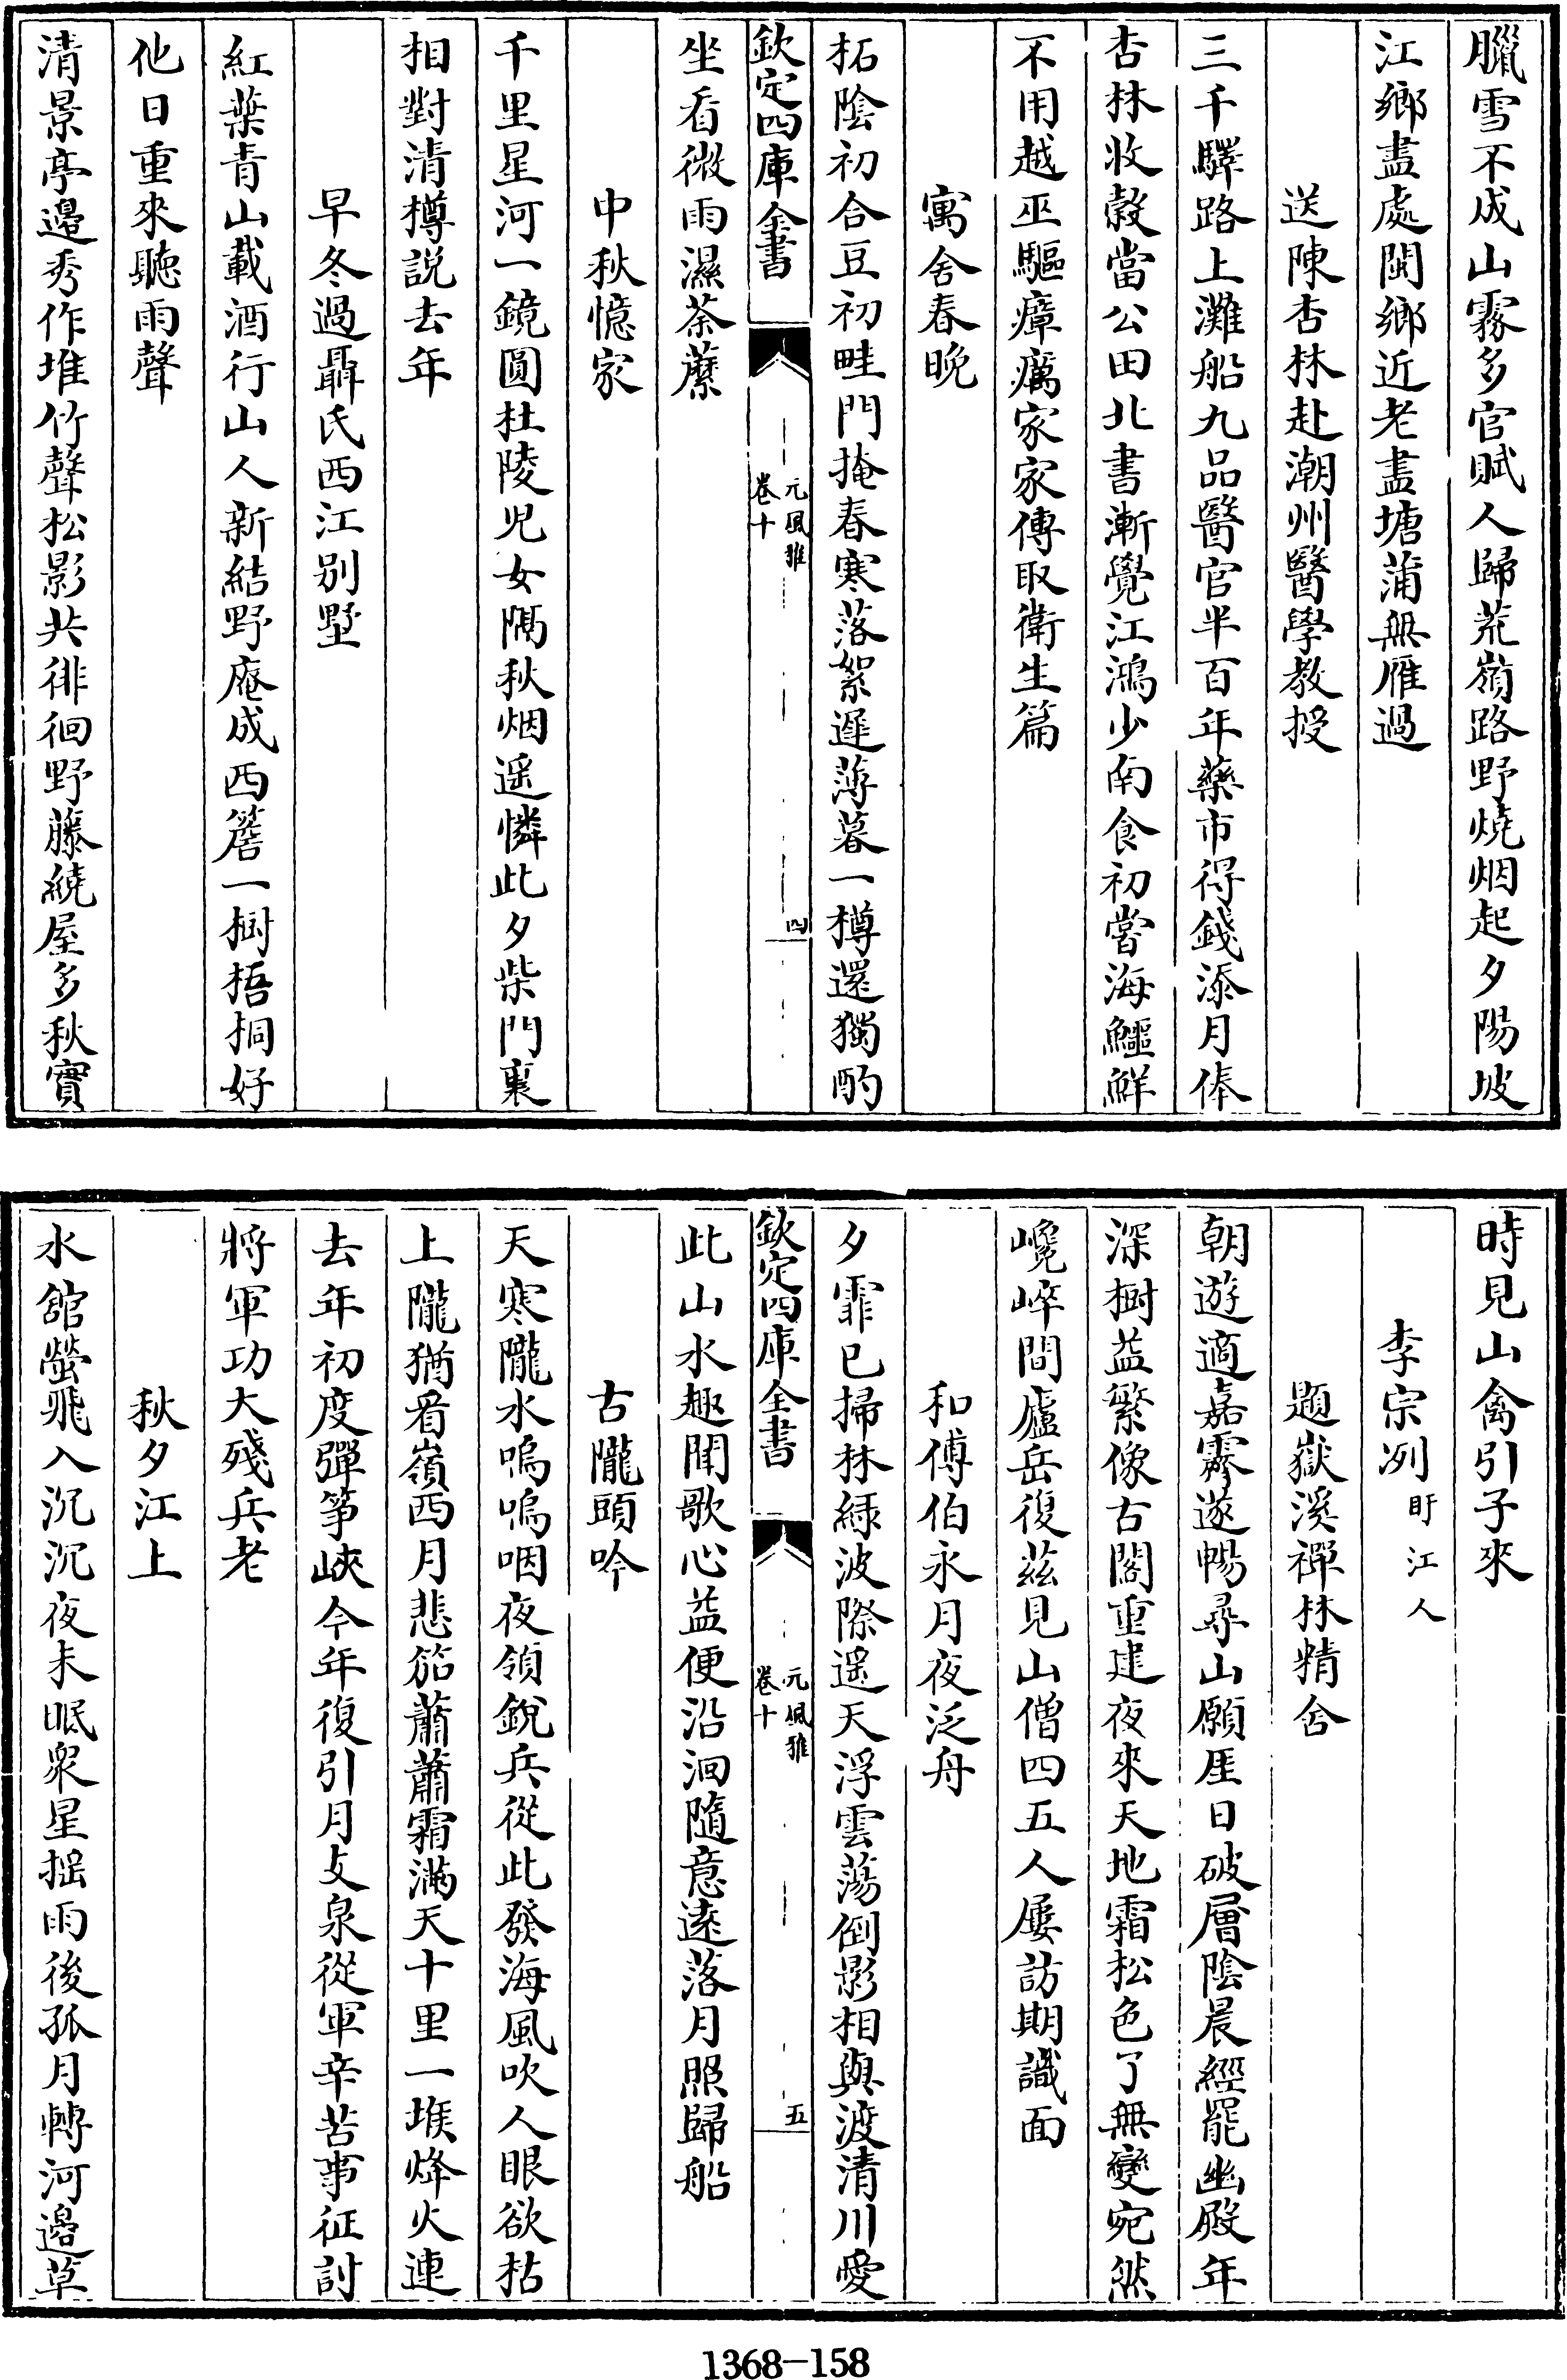 臘雪不成山霧多官賦人歸荒嶺路野燒烟起夕陽坡
江鄉盡處閩鄉近老盡塘蒲無雁過
送陳杏林赴潮州醫學教授
三千驛路上灘船九品醫官半百年藥市得錢添月俸
杏林收穀當公田北書漸覺江鴻少南食初嘗海鱷鮮
不用越巫驅瘴癘家家傳取衛生篇
寓舍春晚
柘陰初合豆初畦門掩春寒落絮遲薄暮一樽還獨酌
欽定四庫全書
元風雅
卷十
四
坐看微雨濕荼蘼
中秋憶家
千里星河一鏡圓杜陵児女隔秋烟遥憐此夕柴門裏
相對清樽説去年
早冬過聶氏西江别墅
紅葉青山載酒行山人新結野庵成西簷一樹梧桐好
他日重來聽雨聲
清景亭邉秀作堆竹聲松影共徘徊野藤繞屋多秋實
時見山禽引子來
李宗冽
盱江人
題嶽溪禪林精舍
朝遊適嘉霽遂暢尋山願厓日破層陰晨經罷幽殿年
深樹益繁像古閣重建夜來天地霜松色了無變宛然
巉崪間廬岳復茲見山僧四五人屢訪期識面
和傅伯永月夜泛舟
夕霏已掃林緑波際遥天浮雲蕩倒影相與渡清川愛
欽定四庫全書
元風雅
卷十
五
此山水趣聞歌心益便沿洄隨意遠落月照歸船
古隴頭吟
天寒隴水嗚嗚咽夜領銳兵從此發海風吹人眼欲枯
上隴猶看嶺西月悲笳蕭蕭霜滿天十里一堠烽火連
去年初度彈筝峽今年復引月支泉從軍辛苦事征討
將軍功大殘兵老
秋夕江上
水舘螢飛入沉沉夜未眠衆星揺雨後孤月轉河邉草
1368-158